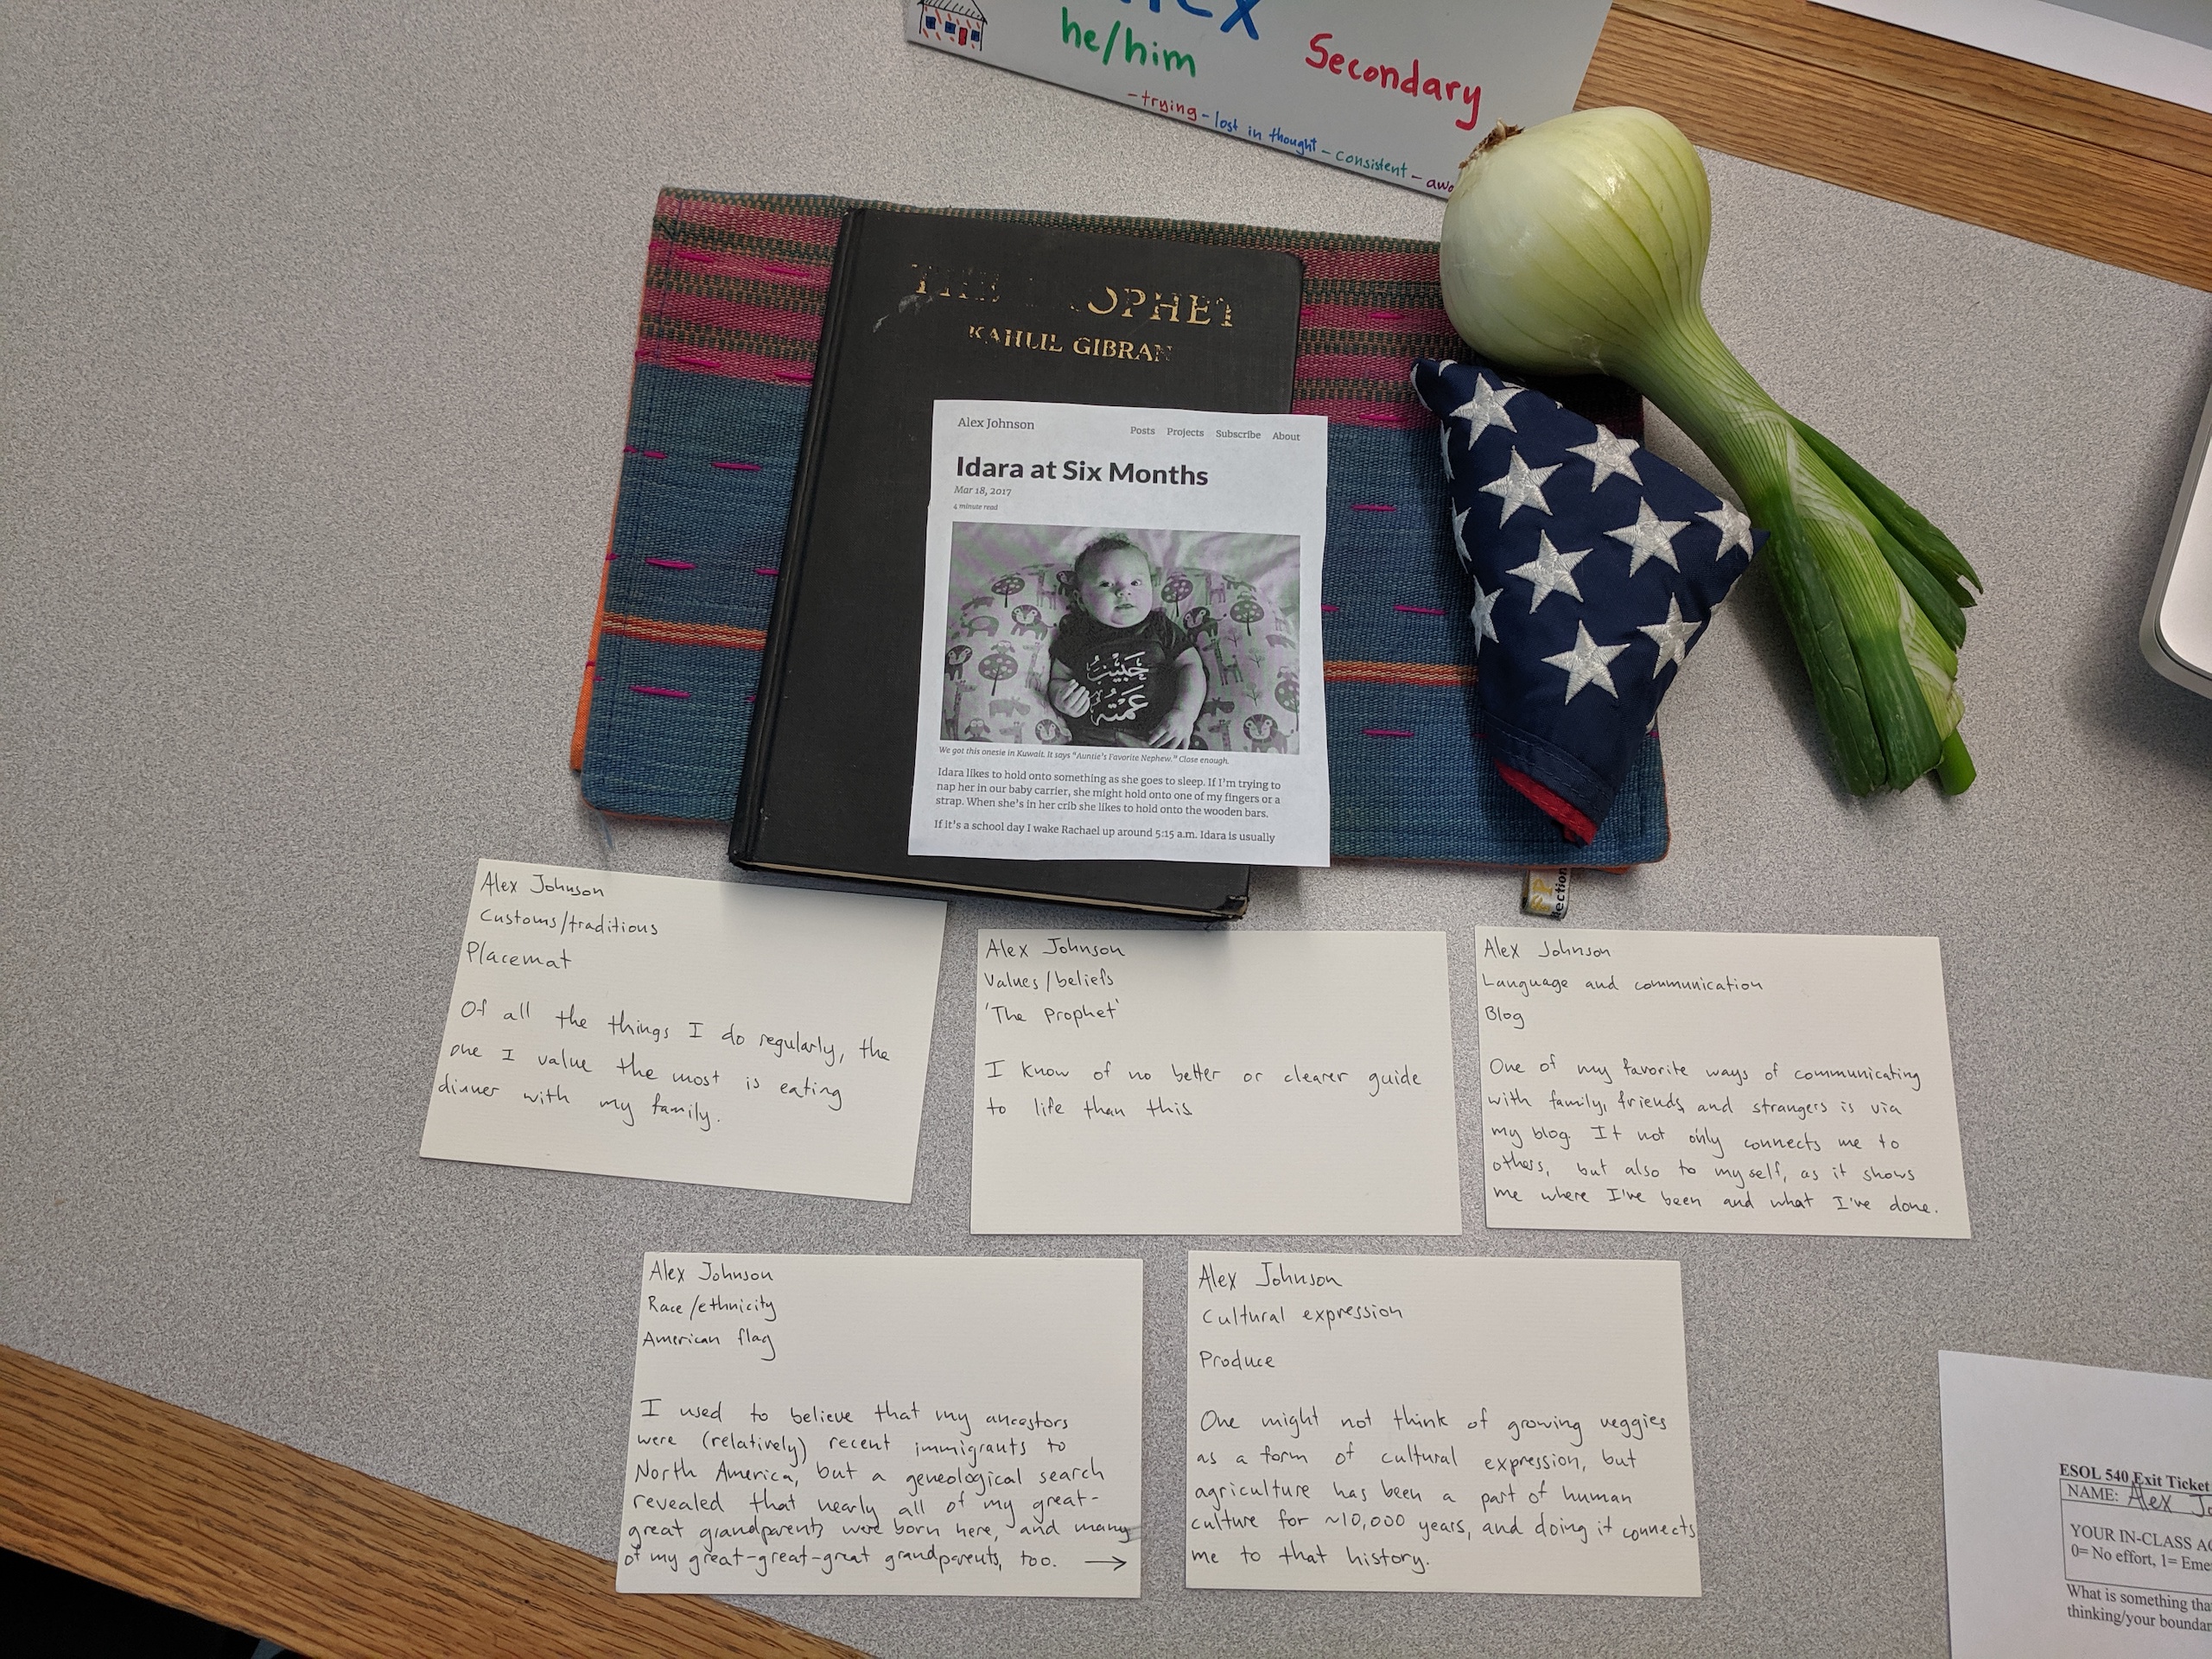 he/him
Secondary
- trying - lost in thought - consistent -
THE PROPHET
KAHLIL GIBRAN
Alex Johnson
Posts Projects Subscribe About
Idara at Six Months
Mar 18, 2017
4 minute read
حبيب
عمته
We got this onesie in Kuwait. It says "Auntie's Favorite Nephew." Close enough.
Idara likes to hold onto something as she goes to sleep. If I'm trying to
nap her in our baby carrier, she might hold onto one of my fingers or a
strap. When she's in her crib she likes to hold onto the wooden bars.
If it's a school day I wake Rachael up around 5:15 a.m. Idara is usually
Alex Johnson
Customs/traditions
Placemat
Of all the things I do regularly, the
one I value the most is eating
dinner with my family.
Alex Johnson
Values/beliefs
'The Prophet'
I know of no better or clearer guide
to life than this
Alex Johnson
Language and communication
Blog
One of my favorite ways of communicating
with family, friends, and strangers is via
my blog. It not only connects me to
others, but also to myself, as it shows
me where I've been and what I've done.
Alex Johnson
Race/ethnicity
American flag
I used to believe that my ancestors
were (relatively) recent immigrants to
North America, but a geneological search
revealed that nearly all of my great-
great grandparents were born here, and many
of my great-great-great grandparents, too. →
Alex Johnson
Cultural expression
Produce
One might not think of growing veggies
as a form of cultural expression, but
agriculture has been a part of human
culture for ~10,000 years, and doing it connects
me to that history.
ESOL 540 Exit Ticket
NAME: Alex
YOUR IN-CLASS
0= No effort, 1=
What is something
thinking/your